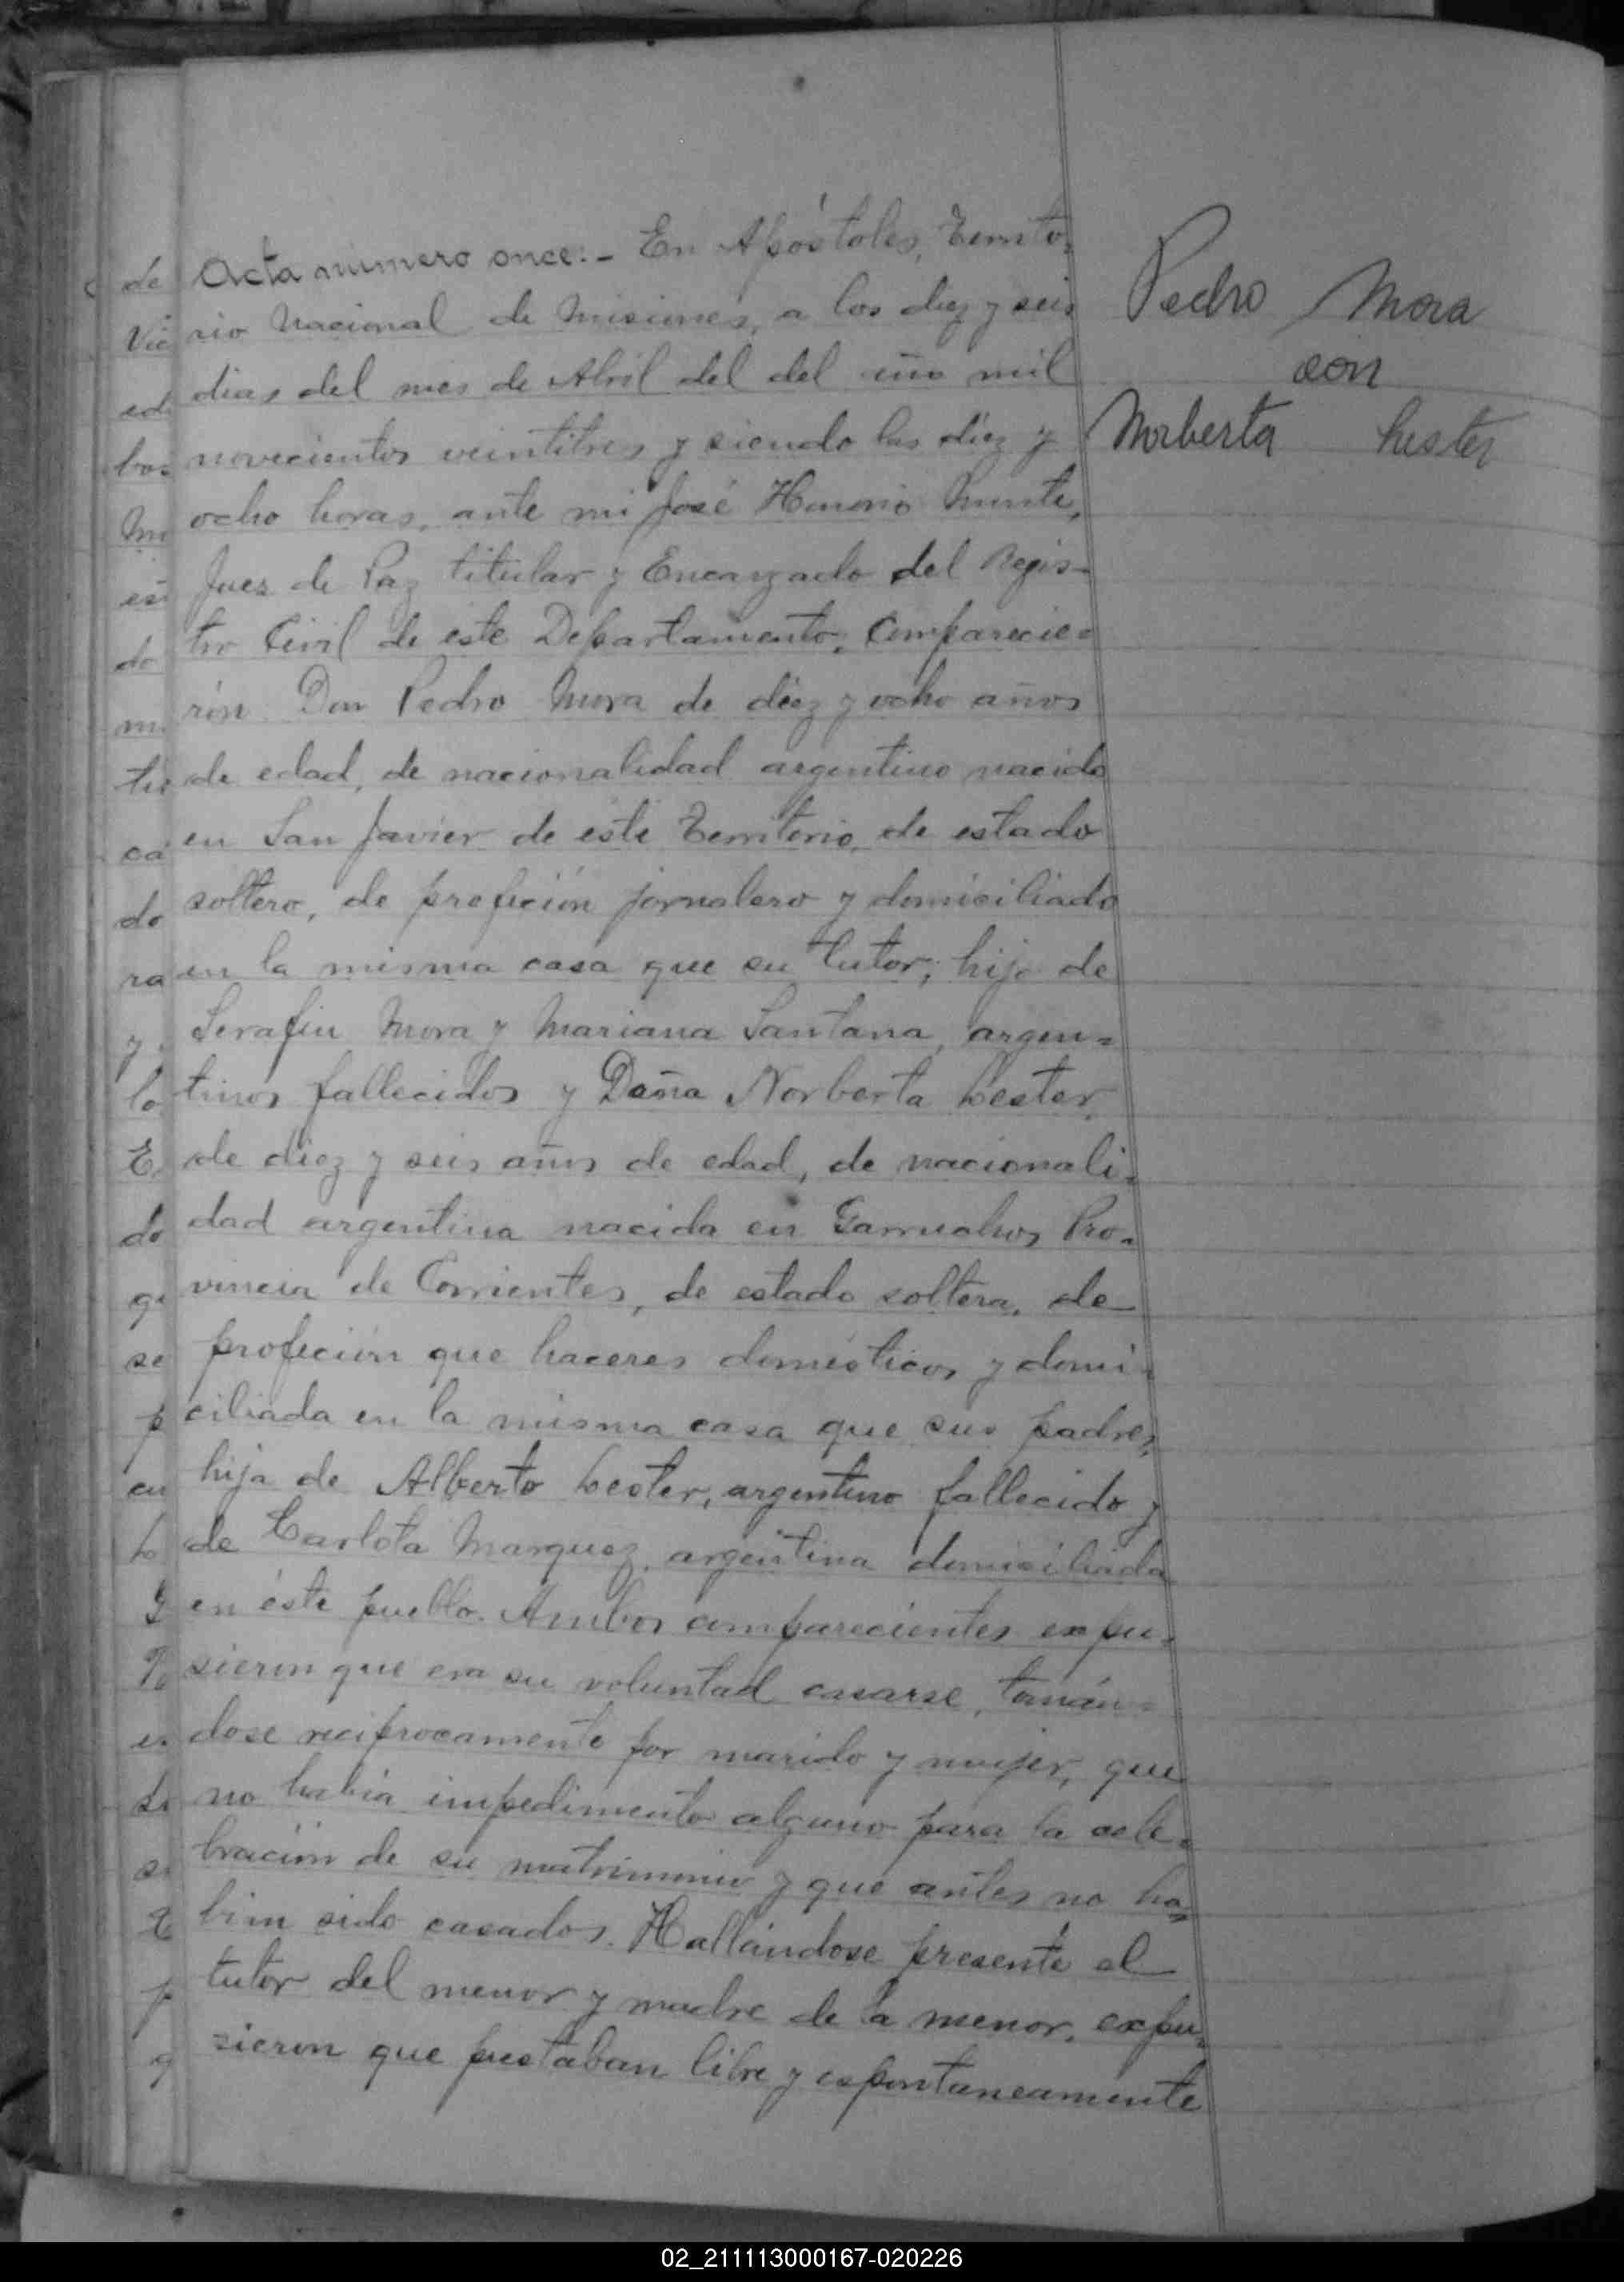 Acta número once:- En Apóstoles, Territo-
rio Nacional de Misiones, a los diez y seis
dias del mes de Abril del del año mil
novecientos veintitres y siendo las diez y
ocho horas, ante mi José Honorio
Juez de Paz titular y Encargado del Regis-
tro Civil de este Departamento, Comparecie-
rón Don Pedro Mora de diez y ocho años
de edad, de nacionalidad argentino nacido
en San Javier de este Territorio, de estado
soltero, de profición jornalero y domiciliado
en la misma casa que su tutor; hijo de
Serafin Mora y Mariana Santana, argen-
tinos fallecidos y Doña Norberta Lester,
de diez y seis años de edad, de nacionali-
dad argentina nacida en Garruchos Pro-
vincia de Corrientes, de estado soltera, de
profición que haceres domésticos y domi-
ciliada en la misma casa que sus padres,
hija de Alberto Lester, argentino fallecido y
de Carlota Marquez, argentina domiciliada
en éste pueblo. Ambos comparecientes expu-
sieron que era su voluntad casarse, tomán-
dose reciprocamente por marido y mujer, que
no había impedimento alguno para la cele-
bración de su matrimonio y que antes no ha-
bian sido casados. Hallándose presente el
tutor del menor y madre de la menor, expu-
sieron que prestaban libre y espontaneamente
Pedro Mora
con
Norberta Lester
de
Vic
ed
bos
do
ca
do
ra
y
lo
E
do
se
p
en
02_211113000167-020226